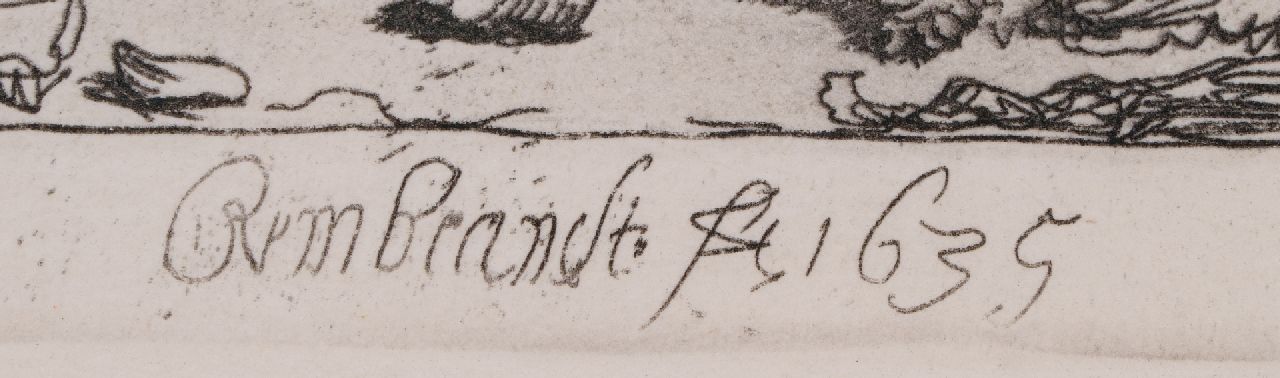 Rembrandt. ft 1635